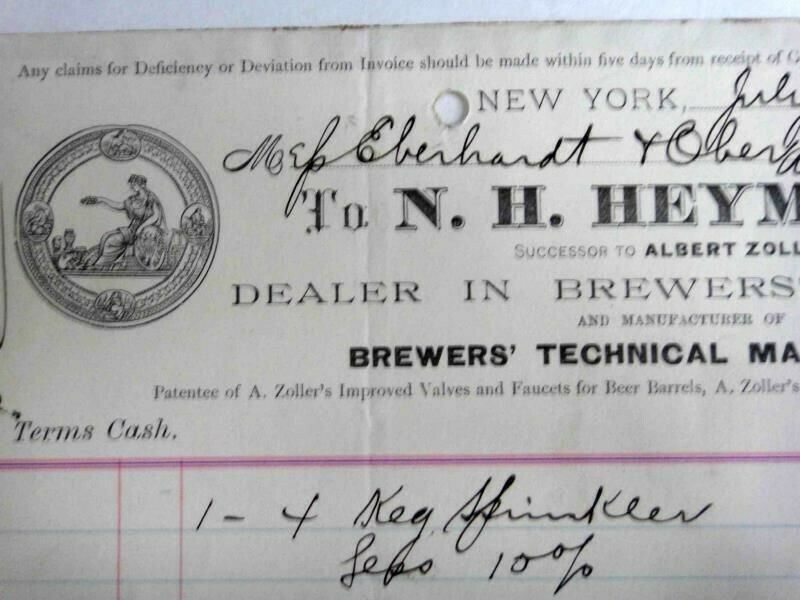 Any claims for Deficiency or Deviation from Invoice should be made within five days from receipt of
NEW YORK, July
Mess Eberhardt & Ober
To N. H. HEYM
SUCCESSOR TO ALBERT ZOLL
DEALER IN BREWERS'
AND MANUFACTURER OF
BREWERS' TECHNICAL MA
Patentee of A. Zoller's Improved Valves and Faucets for Beer Barrels, A. Zoller's
Terms Cash.
1 - 4 Keg Sprinkler
Less 10%